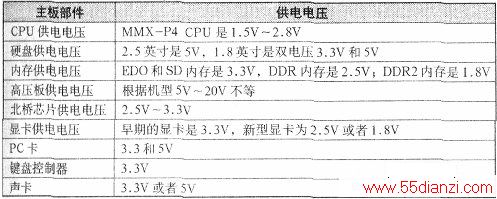 主板部件 供电电压
CPU 供电电压 MMX-P4 CPU 是 1.5V~2.8V
硬盘供电电压 2.5 英寸是 5V，1.8 英寸是双电压 3.3V 和 5V
内存供电电压 EDO 和 SD 内存是 3.3V，DDR 内存是 2.5V；DDR2 内存是 1.8V
高压板供电电压 根据机型 5V~20V 不等
北桥芯片供电电压 2.5V~3.3V
显卡供电电压 早期的显卡是 3.3V，新型显卡为 2.5V 或者 1.8V
PC 卡 3.3 和 5V
键盘控制器 3.3V
声卡 3.3V 或者 5V
www.55dianzi.com